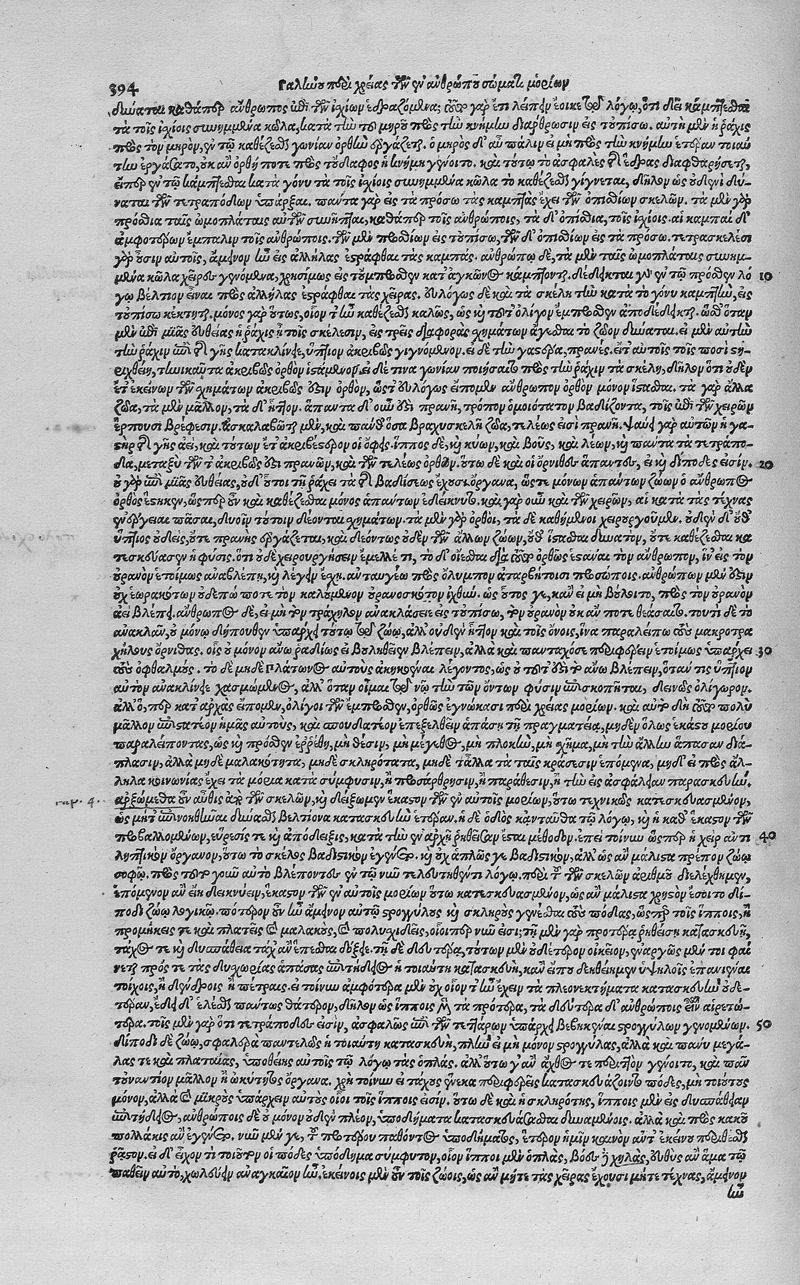 394 Γαληνοῦ περὶ χρείας τῶν ἐν ἀνθρώπου σώματι μορίων
δύναται καθάπερ ἄνθρωπος ἐπὶ τῶν ἰσχίων ἑδραζόμενα; τοῦτο γὰρ ἔτι λείπειν ἔοικε τῷ λόγῳ, ὅτι δεῖ κάμπτεσθαι
τὰ τοῖς ἰσχίοις συνημμένα κῶλα, κατὰ τὴν τοῦ μηροῦ πρὸς τὴν κνήμην διάρθρωσιν εἰς τοὐπίσω. αὕτη μὲν ἡ ῥάχις
πρὸς τὸν μηρὸν, ἐν τῷ καθέζεσθαι γωνίαν ὀρθὴν ἐργάζεται. ὁ μηρὸς δ' αὖ πάλιν εἰ μὴ πρὸς τὴν κνήμην ἑτέραν τοιαύ
την ἐργάζοιτο, οὐκ ἂν ὀρθή ποτε πρὸς τοὔδαφος ἡ κνήμη γένοιτο. καὶ τούτῳ τὸ ἀσφαλὲς τῆς ἕδρας διαφθαρήσεται,
εἴπερ ἐν τῷ κάμπτεσθαι κατὰ γόνυ τὰ τοῖς ἰσχίοις συνημμένα κῶλα τὸ καθέζεσθαι γίγνεται, δῆλον ὡς οὐδενὶ δύ-
ναται τῶν τετραπόδων ὑπάρξαι. πάντα γὰρ εἰς τὰ πρόσω τὰς καμπὰς ἔχει τῶν ὀπισθίων σκελῶν. τὰ μὲν γὰρ
πρόσθια ταῖς ὠμοπλάταις αὐτῶν συνῆπται, καθάπερ τοῖς ἀνθρώποις, τὰ δ' ὀπίσθια, τοῖς ἰσχίοις. αἱ καμπαὶ δ'
ἀμφοτέρων ἔμπαλιν τοῖς ἀνθρώποις. τῶν μὲν προσθίων εἰς τοὐπίσω, τῶν δ' ὀπισθίων εἰς τὰ πρόσω. τετρασκελέσι
γὰρ οὖσιν αὐτοῖς, ἄμεινον ἦν εἰς ἀλλήλας ἐστράφθαι τὰς καμπάς. ἀνθρώπῳ δὲ, τὰ μὲν ταῖς ὠμοπλάταις συνημ-
μένα κῶλα χεῖρες γενόμενα, χρησίμως εἰς τοὔμπροσθεν κατ' ἀγκῶνα κάμπτονται. δέδεικται γὰρ ἐν τῷ πρόσθεν λό 10
γῳ βέλτιον εἶναι πρὸς ἀλλήλας ἐστράφθαι τὰς χεῖρας. εὐλόγως δὲ καὶ τὰ σκέλη τὴν κατὰ τὸ γόνυ καμπὴν, εἰς
τοὐπίσω κέκτηται. μόνος γὰρ οὕτως, οἷόν τ' ἦν καθέζεσθαι καλῶς, ὡς καὶ τοῦτ' ὀλίγον ἔμπροσθεν ἀποδέδεικται. ὥσθ' ὅταν
μὲν ἐπὶ μιᾶς εὐθείας ἡ ῥάχις ᾖ τοῖς σκέλεσιν, εἰς τρεῖς διαφορὰς σχημάτων ἄγεσθαι τὸ ζῷον δύναται. εἰ μὲν αὐτὴν
τὴν ῥάχιν ἐπὶ τῆς γῆς κατακλίνῃς, ὕπτιον ἀκριβῶς γιγνόμενον. εἰ δὲ τὴν γαστέρα, πρανές. εἰ δ' αὐτοῖς τοῖς ποσὶ στη-
ριχθείη, τηνικαῦτα ἀκριβῶς ὀρθὸν ἱστάμενον. εἰ δέ τινα γωνίαν ποιήσαιτο πρὸς τὴν ῥάχιν τὰ σκέλη, δῆλον ὅτι οὐδὲν
ἔτ' ἐκείνων τῶν σχημάτων ἀκριβῶς ἐστιν ὀρθόν, ὥστ' εὐλόγως εἴπομεν ἄνθρωπον ὀρθὸν μόνον ἵστασθαι. τὰ γὰρ ἄλλα
ζῷα, τὰ μὲν μᾶλλον, τὰ δ' ἧττον. ἅπαντα δ' οὖν ἐστι πρανῆ, τρόπον ὁμοιότατον βαδίζοντα, τοῖς ἐπὶ τῶν χειρῶν
ἕρπουσι βρέφεσιν. ἀσκαλαβῶται μὲν, καὶ πάνθ' ὅσα βραχυσκελῆ ζῷα, τελέως ἐστὶ πρανῆ. ψαύει γὰρ αὐτῶν ἡ γα-
στὴρ τῆς γῆς ἀεί, καὶ τούτων ἔτ' ἀκριβέστερον οἱ ὄφεις. ἵππος δὲ, καὶ κύων, καὶ βοῦς, καὶ λέων, καὶ πάντα τὰ τετράπο-
δα, μεταξὺ τῶν τ' ἀκριβῶς ἐστι πρανῶν, καὶ τῶν τελέως ὀρθῶν. οὕτω δὲ καὶ οἱ ὄρνιθες ἅπαντες, εἰ καὶ δίποδές εἰσιν. 20
οὐ γὰρ ἐπὶ μιᾶς εὐθείας, οὐδ' οὗτοι τῇ ῥάχει τὰ τῆς βαδίσεως ἔχουσι ὄργανα, ὥστε μόνον ἁπάντων ζώων ὁ ἄνθρωπος
ὀρθὸς ἕστηκεν, ὥσπερ οὖν καὶ καθέζεσθαι μόνος ἁπάντων ἐδείκνυτο. καὶ γὰρ οὖν καὶ τῶν χειρῶν, αἱ κατὰ τὰς τέχνας
ἐνέργειαι πᾶσαι, δυοῖν τούτοιν δέονται σχημάτων. τὰ μὲν γὰρ ὀρθοὶ, τὰ δὲ καθήμενοι χειρουργοῦμεν. οὐδὲν δ' οὔθ'
ὕπτιος οὐδεὶς, οὔτε πρανὴς ἐργάζεται, καὶ δεόντως οὐδὲν τῶν ἄλλων ζώων, οὔθ' ἵστασθαι δυνατὸν, οὔτε καθέζεσθαι κα
τεσκεύασεν ἡ φύσις. ὅτι οὐδὲ χειρουργήσειν ἔμελλέ τι, τὸ δ' οἴεσθαι διὰ τοῦτο ὀρθῶς ἑστάναι τὸν ἄνθρωπον, ἵν' εἰς τὸν
οὐρανὸν ἑτοίμως ἀναβλέπῃ, καὶ λέγειν ἔχῃ. ἀνταυγέω πρὸς ὄλυμπον ἀταρβήτοισι προσώποις. ἀνθρώπων μέν ἐστιν
οὐχ ἑωρακότων οὐδεπώποτε τὸν καλούμενον οὐρανοσκόπον ἰχθύν. ὡς ὅς γε, κἂν εἰ μὴ βούλοιτο, πρὸς τὸν οὐρανὸν
ἀεὶ βλέπει. ἄνθρωπος δὲ, εἰ μὴ τὸν τράχηλον ἀνακλάσειε εἰς τοὐπίσω, τὸν οὐρανὸν οὐκ ἄν ποτε θεάσαιτο. τουτὶ δὲ τὸ
ἀνακλᾶν, οὐ μόνῳ δήπουθεν ὑπάρχει τούτῳ τῷ ζῴῳ, ἀλλ' οὐδὲν ἧττον καὶ τοῖς ὄνοις, ἵνα παραλείπω τοὺς μακροτρα
χήλους ὄρνιθας. οἷς οὐ μόνον ἄνω ῥᾳδίως εἰ βουληθεῖεν βλέπειν, ἀλλὰ καὶ πανταχόσε περιφέρειν ἑτοίμως ὑπάρχει 30
τοὺς ὀφθαλμούς. τὸ δὲ μηδὲ Πλάτωνος αὐτοὺς ἀκηκοέναι λέγοντος, ὡς οὐ τοῦτ' ἔστι τὸ ἄνω βλέπειν, ὅταν τις ὕπτιον
αὑτὸν ἀνακλίνῃ χασμώμενος, ἀλλ' ὅταν οἶμαι τῷ νῷ τὴν τῶν ὄντων φύσιν ἐπισκοπῆται, δεινῶς ὀλίγωρον.
ἀλλ' ὅ, περ κατ' ἀρχὰς εἴπομεν, ὀλίγοι τῶν ἔμπροσθεν, ὀρθῶς ἐγνώκασι περὶ χρείας μορίων. καὶ αὐτὸ δὴ τοῦτο πολὺ
μᾶλλον ἐπιστατέον ἡμᾶς αὐτοὺς, καὶ σπουδαστέον ἐπεξελθεῖν ἁπάσῃ τῇ πραγματείᾳ, μηδὲν ὅλως ἑκάστου μορίου
παραλείποντας, ὡς καὶ πρόσθεν ἐῤῥέθη, μὴ θέσιν, μὴ μέγεθος, μὴ πλοκὴν, μὴ σχῆμα, μὴ τὴν ἄλλην ἅπασαν διά-
πλασιν, ἀλλὰ μηδὲ μαλακότητα, μηδὲ σκληρότητα, μηδὲ τἆλλα τὰ ταῖς κράσεσιν ἑπόμενα, μηδ' εἰ πρὸς ἄλ-
ληλα κοινωνίας ἔχει τὰ μόρια κατὰ σύμφυσιν, ἢ προσάρθρησιν, ἢ παράθεσιν, ἢ τὴν εἰς ἀσφάλειαν παρασκευήν.
ἀρξώμεθα οὖν αὖθις ἀπὸ τῶν σκελῶν, καὶ δείξωμεν ἕκαστον τῶν ἐν αὐτοῖς μορίων, οὕτω τεχνικῶς κατεσκευασμένον,
ὡς μήτ' ἐπινοηθῆναι δύνασθαι βελτίονα κατασκευὴν ἑτέραν. ἡ δὲ ὁδὸς κἀνταῦθα τῷ λόγῳ, καὶ ἡ καθ' ἕκαστον τῶν
προβαλλομένων, εὕρεσίς τε καὶ ἀπόδειξις, κατὰ τὴν ἐν ἀρχῇ ῥηθεῖσαν ἔσται μέθοδον. ἐπεὶ τοίνυν ὥσπερ ἡ χεὶρ ἀντι 40
ληπτικὸν ὄργανον, οὕτω τὸ σκέλος βαδιστικὸν ἐγένετο. καὶ οὐχ ἁπλῶς γε βαδιστικὸν, ἀλλ' ὡς ἂν μάλιστα πρέπον ζώῳ
σοφῷ. πρὸς τοῦτο γοῦν αὐτὸ βλέποντες ἐν τῷ νῦν τελευτηθέντι λόγῳ. περὶ τοῦ τῶν σκελῶν ἀριθμοῦ διελέχθημεν,
ἑπόμενον ἂν εἴη δεικνύειν, ἕκαστον τῶν ἐν αὐτοῖς μορίων οὕτω κατεσκευασμένον, ὡς ἂν μάλιστα χρηστὸν ἔσοιτο δί-
ποδι ζώῳ λογικῷ. πότερον οὖν ἦν ἄμεινον αὐτῷ στρογγύλους καὶ σκληροὺς γενέσθαι τοὺς πόδας, ὥσπερ τοῖς ἵπποις, ἢ
προμήκεις τε καὶ πλατεῖς καὶ μαλακοὺς, καὶ πολυσχιδεῖς, οἷοίπερ νῦν εἰσι; τῇ μὲν γὰρ προτέρᾳ ῥηθείσῃ κατασκευῇ,
τάχος τε καὶ δυσπάθεια τάχ' ἂν ἕπεσθαι δόξῃ. τῇ δὲ δευτέρᾳ, τούτων μὲν οὐδέτερον οἰκεῖον, ἐναργῶς μέν τοι φαί
νεται πρός τε τὰς δυσχωρίας ἁπάσας ἐπιτήδειος ἡ τοιαύτη κατασκευὴ, κἂν εἴπου δεηθείημεν ὑψηλοῖς ἐπαναβῆναι
τοίχοις, ἢ δένδροις ἢ πέτραις. εἰ τοίνυν ἀμφότερα μὲν οὐχ οἷόν τ' ἦν ἔχειν τὰ πλεονεκτήματα κατασκευὴν οὐδε-
τέραν, ἔδει δ' ἑλέσθαι πάντως θάτερον, δῆλον ὡς ἵπποις μὲν τὰ πρότερα, τὰ δεύτερα δ' ἀνθρώποις εἶναι αἱρετώ-
τερα. τοῖς μὲν γὰρ ὅτι τετράποδές εἰσιν, ἀσφαλῶς ἐπὶ τῶν τεττάρων ὑπάρχει βεβηκέναι στρογγύλων γενομένων. 50
δίποδι δὲ ζώῳ, σφαλερὰ παντελῶς ἡ τοιαύτη κατασκευὴ, πλὴν εἰ μὴ μόνον στρογγύλας, ἀλλὰ καὶ πάνυ μεγά-
λας τε καὶ πλατείας, ὑποθείης αὐτοῖς τῷ λόγῳ τὰς ὁπλάς. ἀλλ' οὕτω γ' ἂν ἄχθος τε περιττὸν γένοιτο, καὶ πᾶν
τοὐναντίον μᾶλλον ἢ ὠκύτητος ὄργανα. χρὴ τοίνυν εἰ τάχους ἕνεκα περιφερεῖς κατασκευάζοιντο πόδες, μὴ τοιούτους
μόνον, ἀλλὰ καὶ μικροὺς ὑπάρχειν αὐτοὺς οἷοι τοῖς ἵπποις εἰσίν. οὕτω δὲ καὶ ἡ σκληρότης, ἵπποις μὲν εἰς δυσπάθειαν
ἐπιτήδειος, ἀνθρώποις δὲ οὐ μόνον οὐδὲν πλέον, ὑποδήματα κατασκευάζεσθαι δυναμένοις. ἀλλὰ καὶ πρὸς κακοῦ
πολλάκις ἂν ἐγένετο. νῦν μέν γε, τοῦ προτέρου παθόντος ὑποδήματος, ἕτερον ἡμῖν καινὸν ἀντ' ἐκείνου περιθέσθαι
ῥᾷστον. εἰ δ' εἶχόν τι τοιοῦτον οἱ πόδες ὑπόδημα σύμφυτον, οἷον ἵπποι μὲν ὁπλὰς, βόες δὲ χηλὰς, εὐθὺς ἂν ἅμα τῷ
παθεῖν αὐτὸ, χωλεύειν ἀναγκαῖον ἦν. ἐκείνοις μὲν οὖν τοῖς ζώοις, ὡς ἂν μήτε τὰς χεῖρας ἔχουσι μήτε τέχνας, ἄμεινον
ἦν